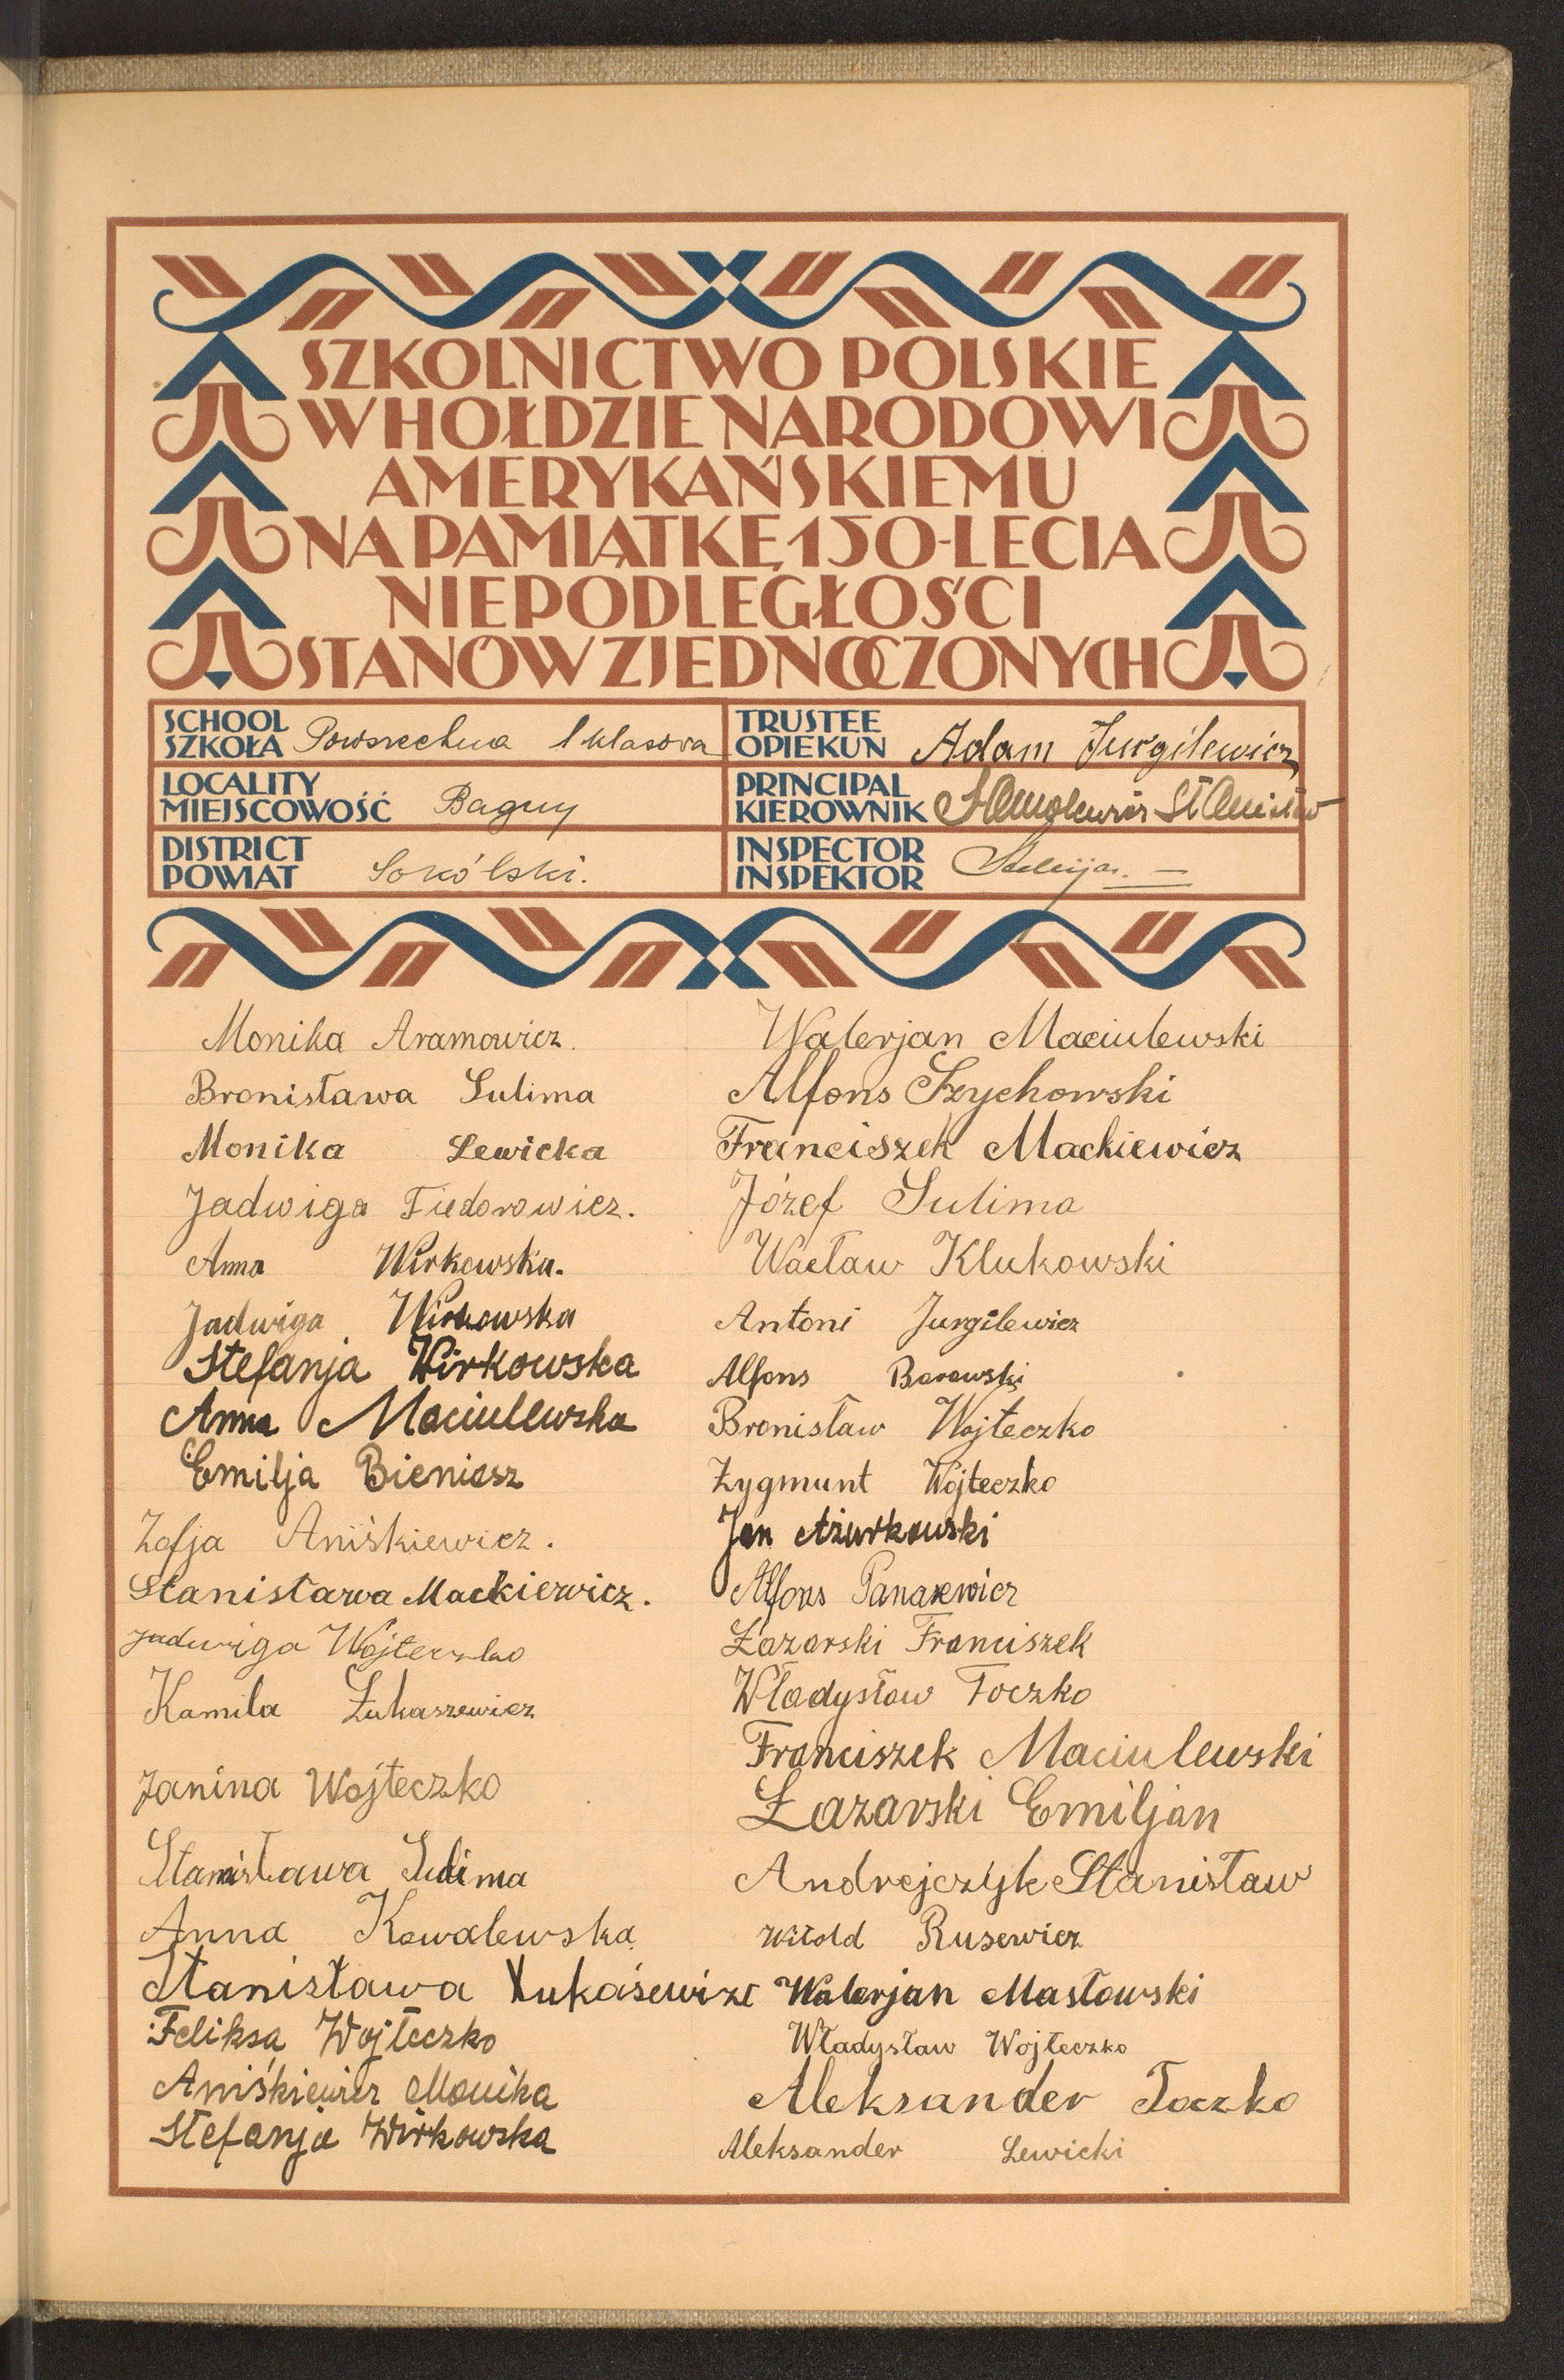 SZKOLNICTWO POLSKIE
W HOŁDZIE NARODOWI
AMERYKAŃSKIEMU
NA PAMIĄTKĘ 150-LECIA
NIEPODLEGŁOŚCI
STANÓW ZJEDNOCZONYCH
SCHOOL
SZKOŁA Powszechna 1 klasowa
TRUSTEE
OPIEKUN Adam Jurgilewicz
LOCALITY
MIEJSCOWOŚĆ Bagny
PRINCIPAL
KIEROWNIK Stanisław
DISTRICT
POWIAT Sokólski.
INSPECTOR
INSPEKTOR
Monika Aramowicz.
Bronisława Sulima
Monika Lewicka
Jadwiga Fiedorowicz.
Anna Wirkowska.
Jadwiga Wirkowska
Stefanja Wirkowska
Anna Maciulewska
Emilja Bieniasz
Zofja Aniśkiewicz.
Stanisława Mackiewicz.
Jadwiga Wojteczko
Kamila Łukaszewicz
Janina Wojteczko
Stanisława Sulima
Anna Kowalewska
Stanisława Łukaśewizc
Feliksa Wojteczko
Aniśkiewicz Monika
Stefanja Wirkowska
Walerjan Maciulewski
Alfons Szychowski
Franciszek Mackiewicz
Józef Sulima
Wacław Klukowski
Antoni Jurgilewicz
Alfons Borowski
Bronisław Wojteczko
Zygmunt Wojteczko
Jan Ażurkowski
Alfons Panasewicz
Łazarski Franciszek
Władysław Toczko
Franciszek Maciulewski
Łazarski Emiljan
Andrejczyk Stanisław
Witold Rusewicz
Walerjan Masłowski
Władysław Wojteczko
Aleksander Toczko
Aleksander Lewicki